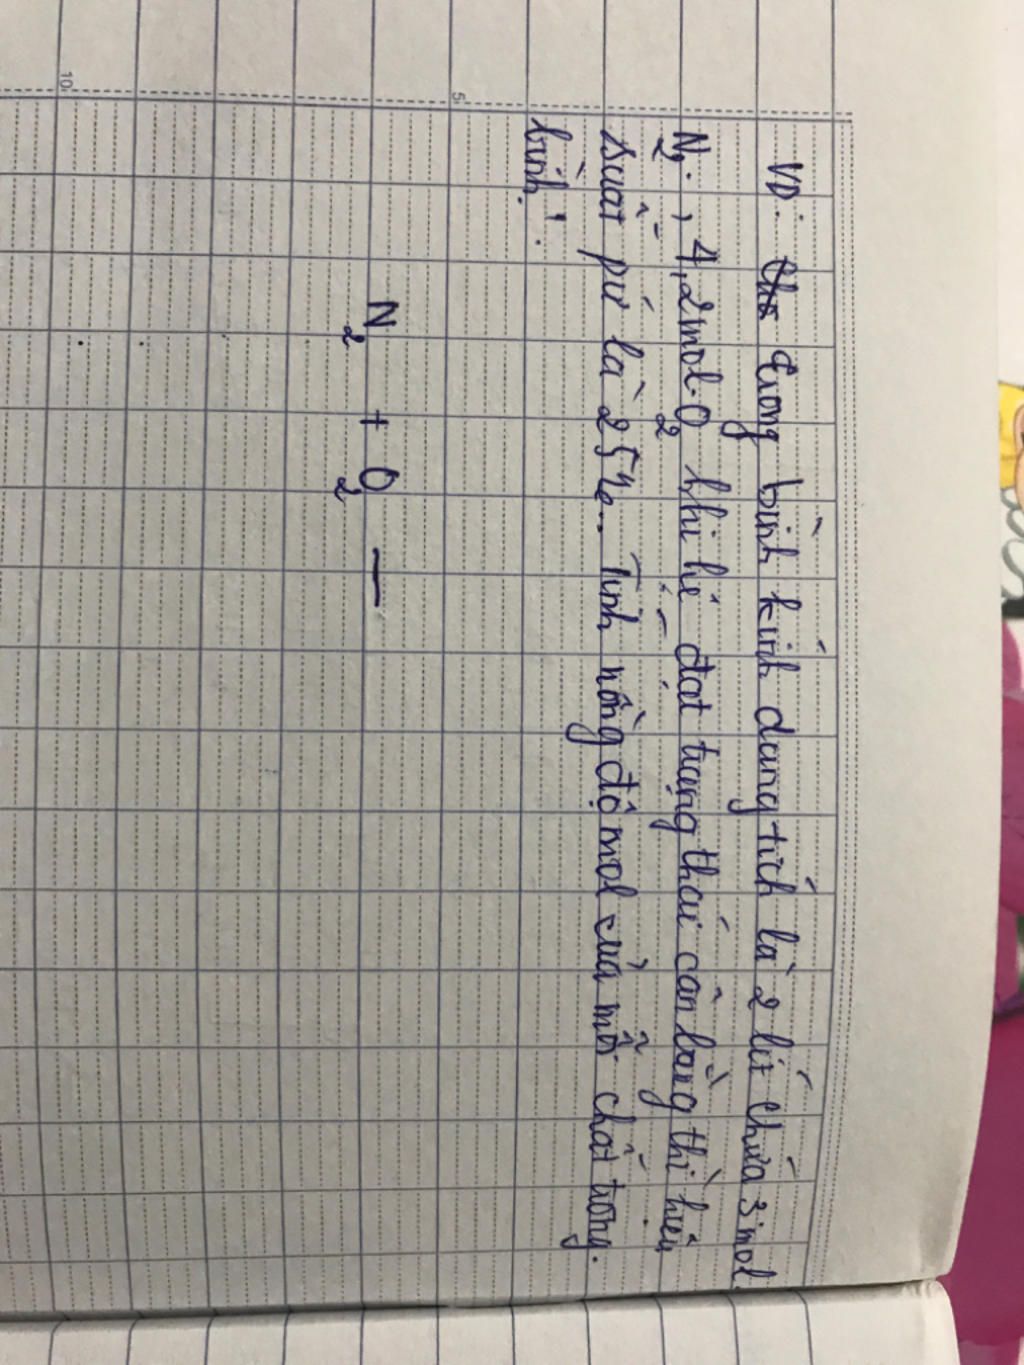 VD: trong bình kính dung tích là 2 lít chứa 3 mol
N₂, 4,2 mol O₂ khi hệ đạt trạng thái cân bằng thì hiệu
suất pứ là 25%. Tính nồng độ mol của mỗi chất trong
bình!
N₂ + O₂ —
5
10